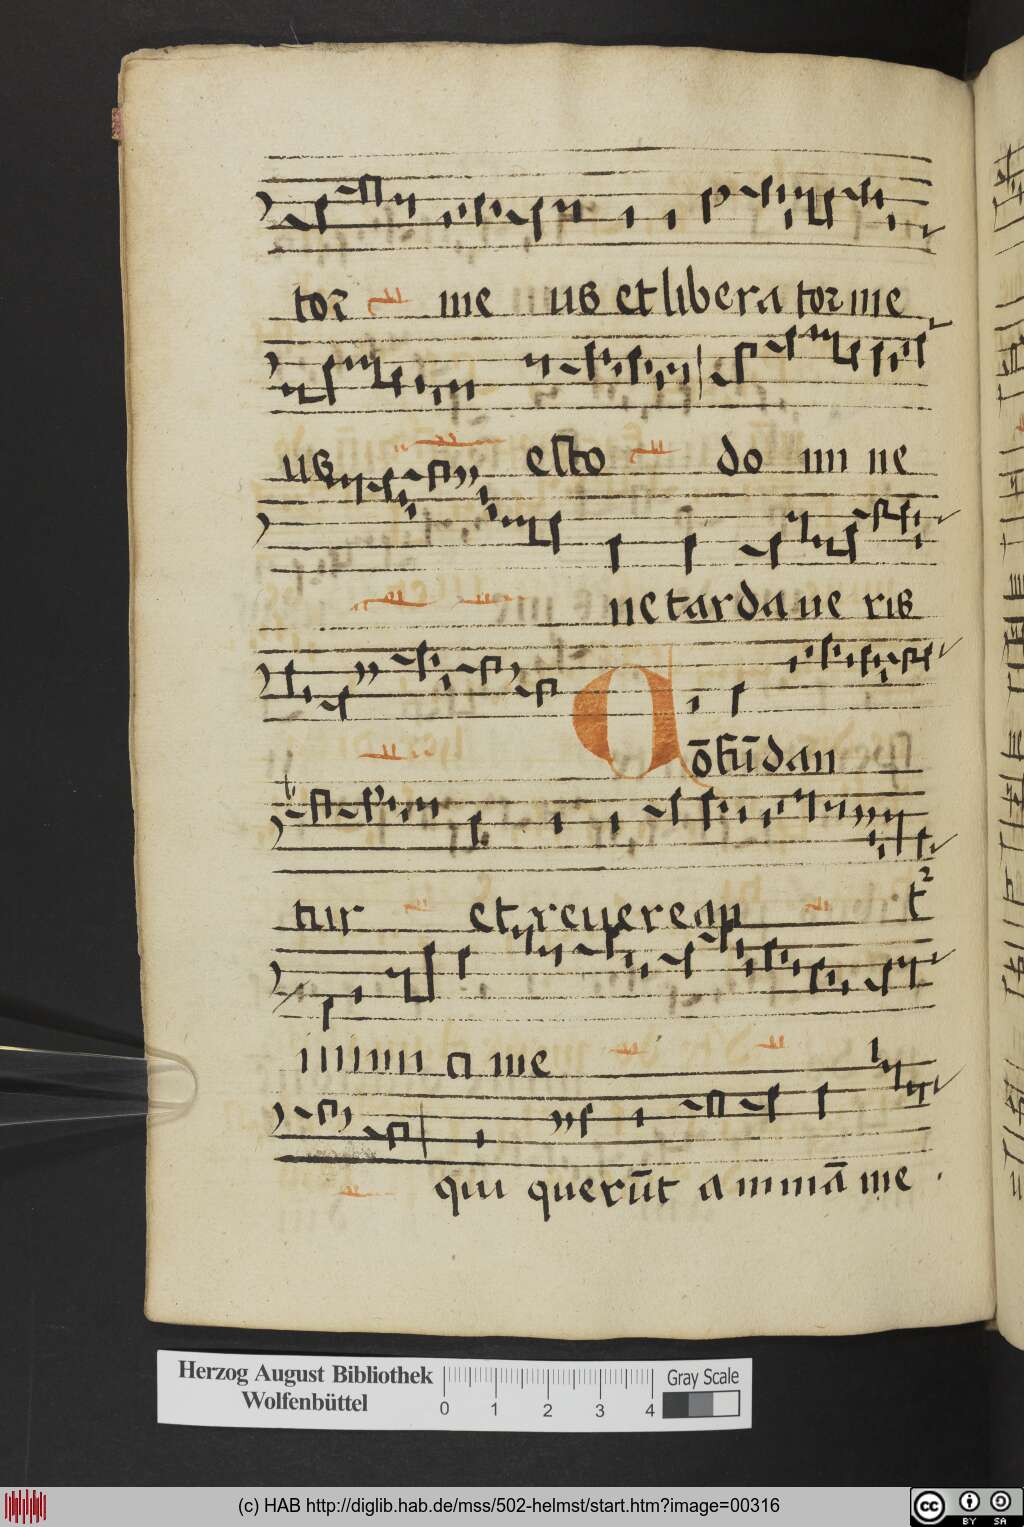 tor me us et libera tor me
us esto do mi ne
ne tarda ue ris
Cōfūdan
tur et reuerean t²
inimi ci me
qui querūt animā me
Herzog August Bibliothek
Wolfenbüttel
0 1 2 3 4
Gray Scale
(c) HAB http://diglib.hab.de/mss/502-helmst/start.htm?image=00316
cc
BY SA